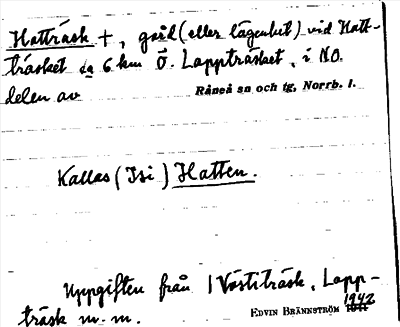 Hatträsk +, gård (eller lägenhet) vid Hatt-
träsket ca 6 km Ö. Lappträsket, i NO.
delen av Råneå sn och tg, Norrb. l.
Kallas (Isi) Hatten.
Uppgiften från Västiträsk, Lapp-
träsk m. m. EDVIN BRÄNNSTRÖM 1942